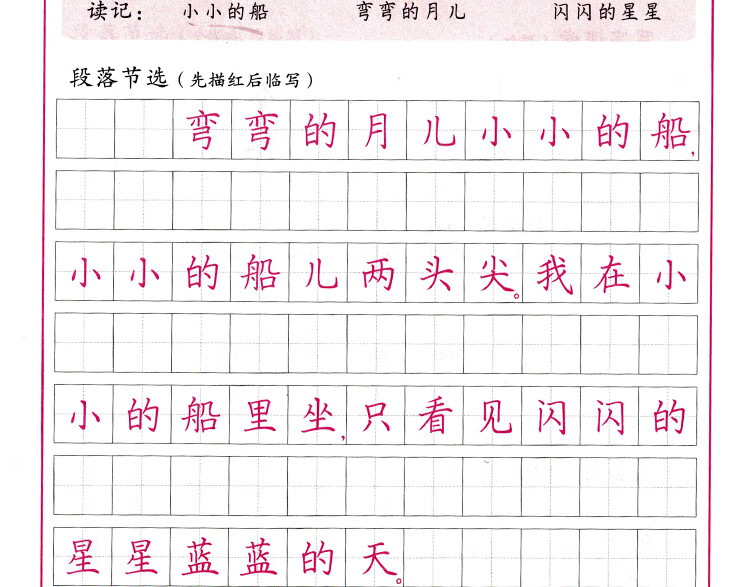 读记： 小小的船 弯弯的月儿 闪闪的星星
段落节选（先描红后临写）
弯弯的月儿小小的船，
小小的船儿两头尖。我在小
小的船里坐，只看见闪闪的
星星蓝蓝的天。